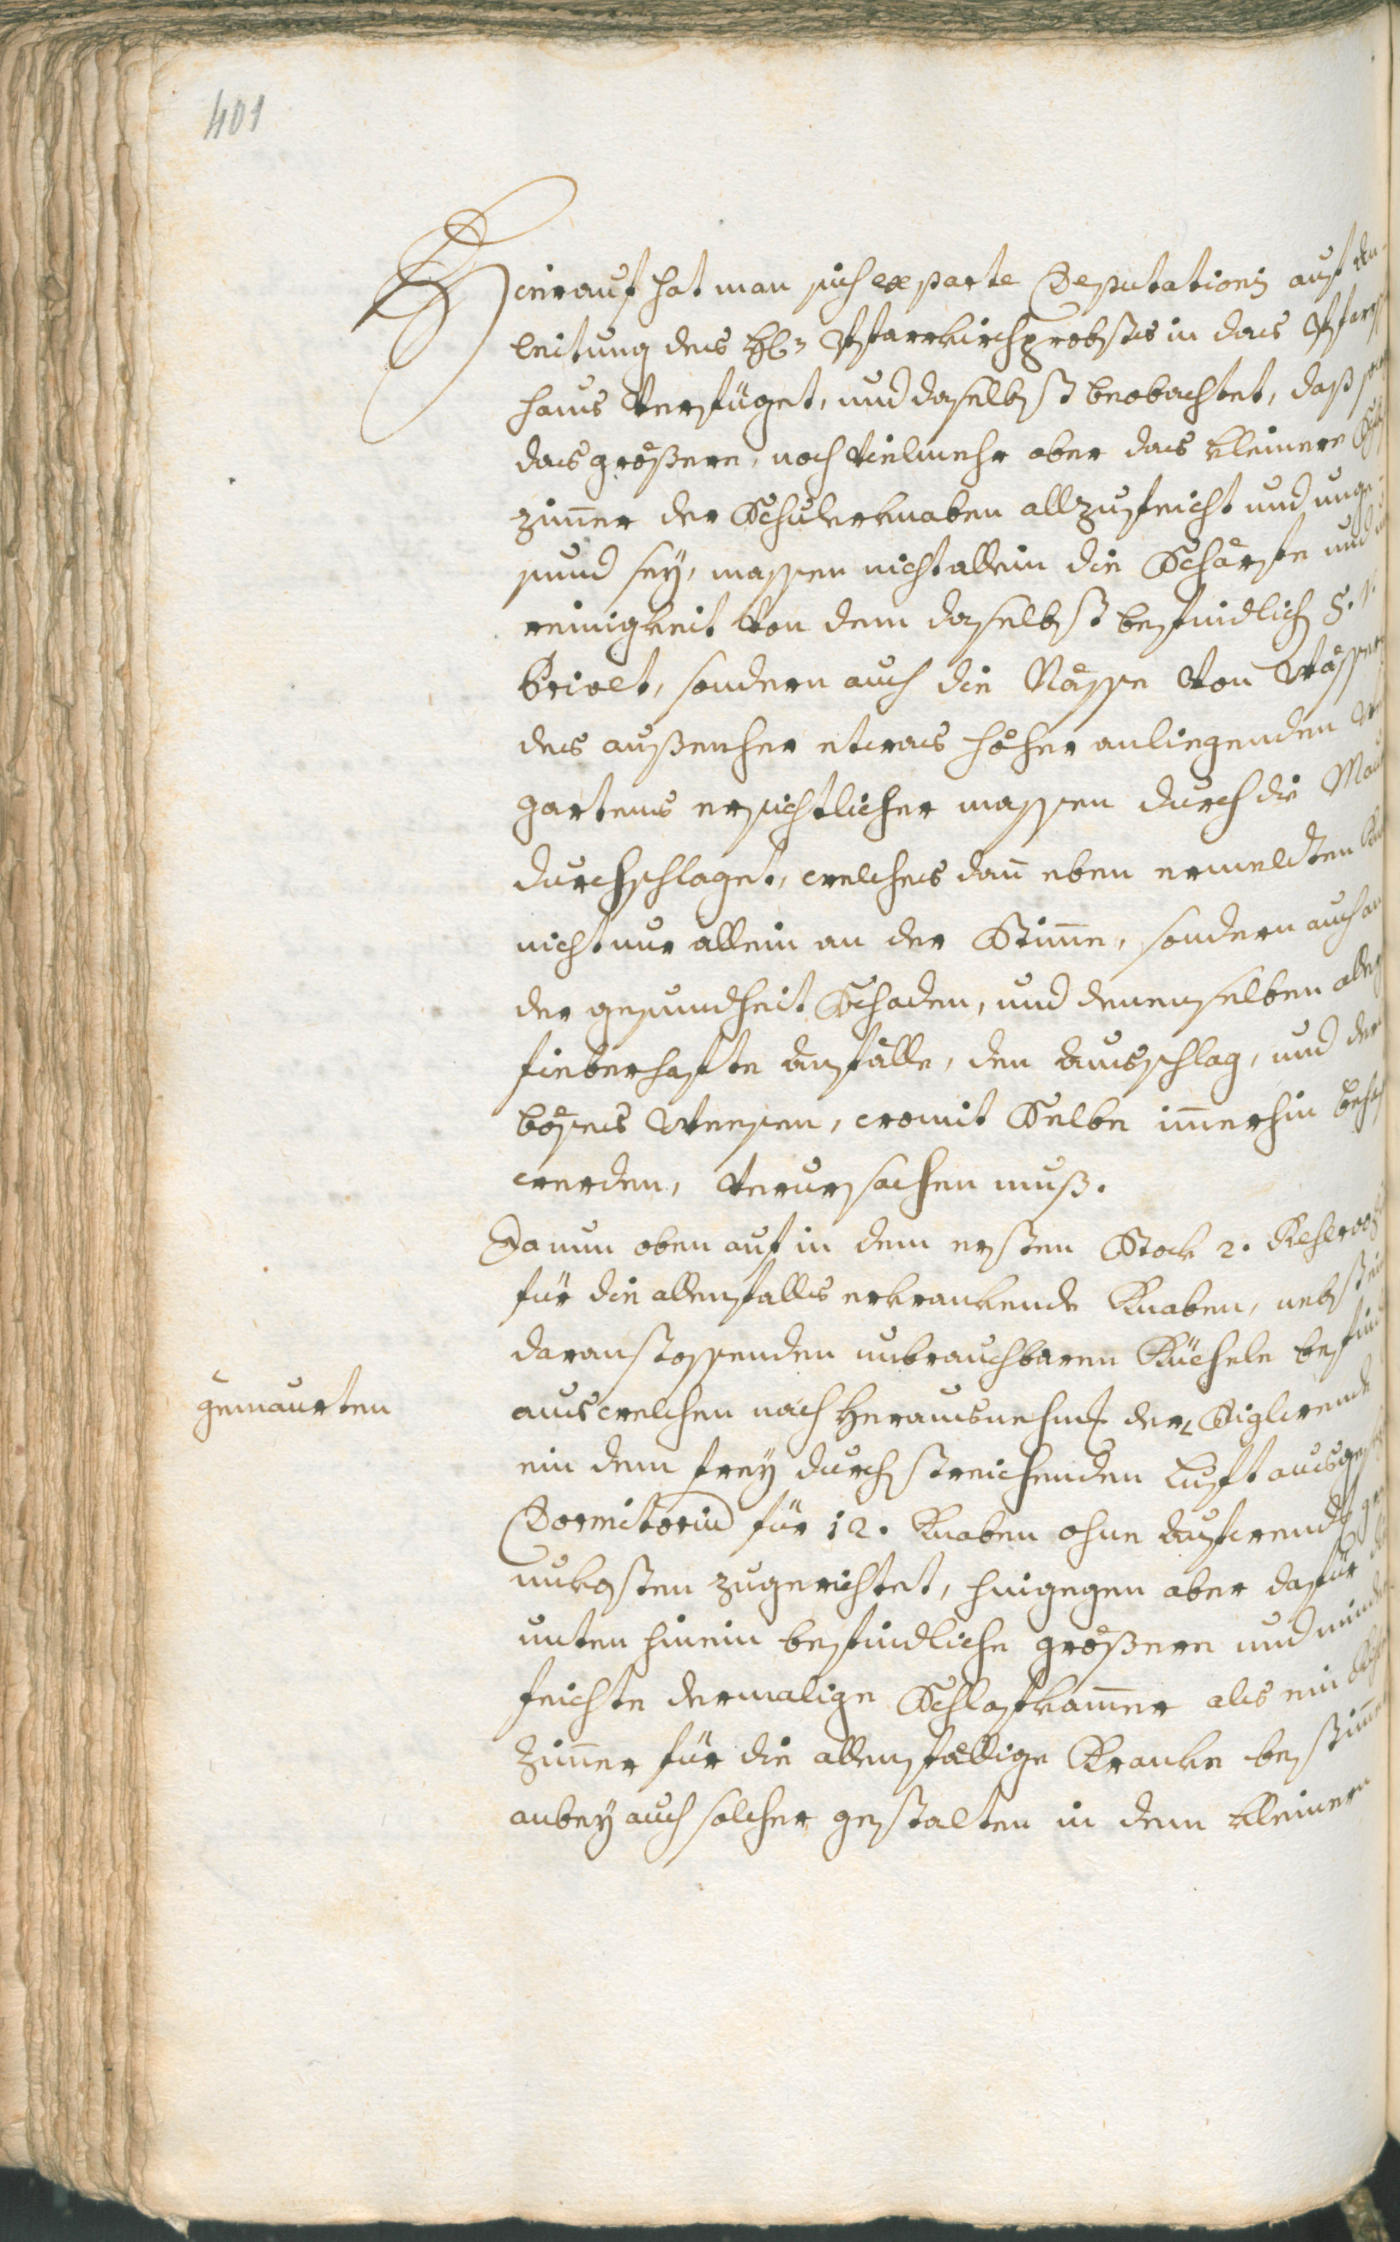 401
Hierauf hat man sich ex parte Deputationis auf An-
leitung des H: Pfarrkirchprobsts in das Pfarr
haus verfüget, und daselbst beobachtet, daß
das größere, noch vielmehr aber das kleinere
zimmer der Schulerknaben allzufeicht und unge-
sund sey, massen nicht allein die Schärfe und
reinigkeit von dem daselbst befindlich S. V.
Privet, sondern auch die Nässe von Wasser
des außenher etwas höher anliegenden
gartens ersichtlicher massen durch die Mau
durchschlaget, welches dann eben ermeldten
nicht nur allein an der Stimme, sondern auch an
der gesundheit Schaden, und denenselben
fieberhafte Anfälle, den Ausschlag, und der
böses Wesen, womit Selbe immerhin
werden, verursachen muß.
Da nun oben auf in dem ersten Stock 2.
für die allenfalls erkrankende Knaben, nebst
daranstossenden unbrauchbaren Kuchele
gemaurten
aus welchen nach Herausnehmung der
ein dem frey durchstreichenden Luft
Dormitorium für 12. Knaben ohne
unkosten zugerichtet, hingegen aber dafür
unten hinein befindliche größere und
feichte dermalige Schlafkammer als ein
Zimmer für die allenfällige Kranke
anbey auch solcher gestalten in dem kleinern